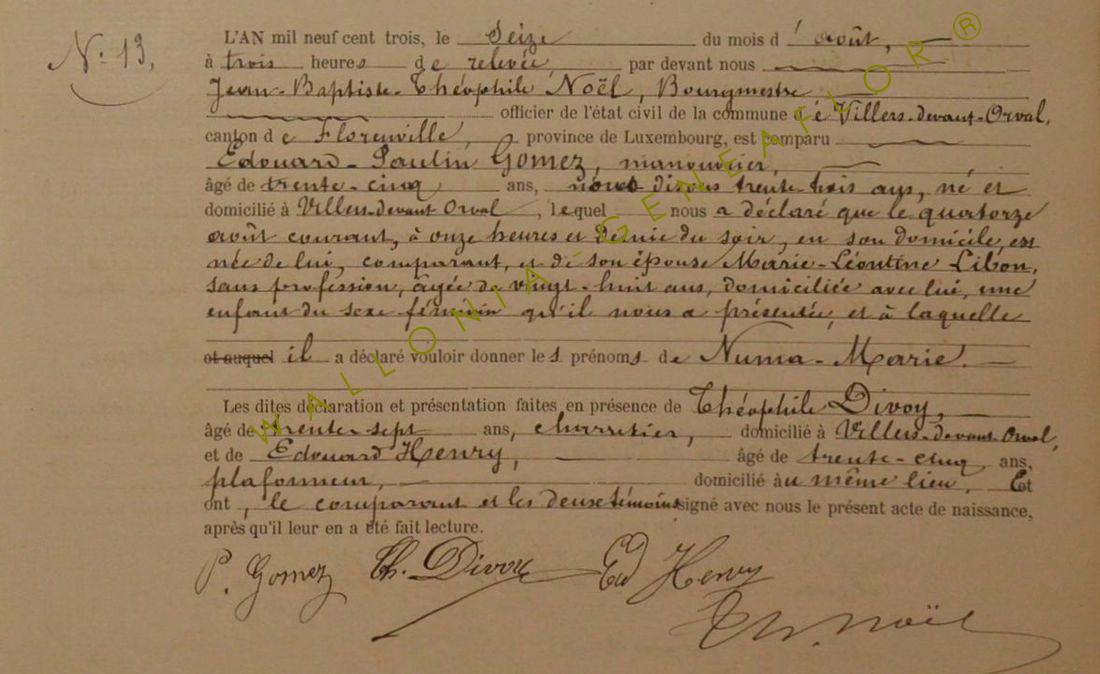 N° 13,
L'AN mil neuf cent trois, le Seize du mois d'août,
à trois heures de relevée, par devant nous
Jean-Baptiste-Théophile Noël, Bourgmestre
officier de l'état civil de la commune de Villers-devant-Orval,
canton de Florenville, province de Luxembourg, est comparu
Edouard-Paulin Gomez, manouvrier,
âgé de trente-cinq ans, nous disons trente trois ans, né et
domicilié à Villers-devant Orval, lequel nous a déclaré que le quatorze
août courant, à onze heures et demie du soir, en son domicile, est
née de lui, comparant, et de son épouse Marie-Léontine Libon,
sans profession, âgée de vingt-huit ans, domiciliée avec lui, une
enfant du sexe féminin qu'il nous a présentée, et à laquelle
et auquel il a déclaré vouloir donner les prénoms de Numa-Marie.
Les dites déclaration et présentation faites en présence de Théophile Divoy,
âgé de trente-sept ans, charretier, domicilié à Villers-devant Orval,
et de Edouard Henry, âgé de trente-cinq ans,
plafonneur, domicilié au même lieu. Et
ont, le comparant et les deux témoins signé avec nous le présent acte de naissance,
après qu'il leur en a été fait lecture.
P. Gomez Th. Divoy Ed Henry
Th. Noël
WALLONIA-GENEAFLOR ®